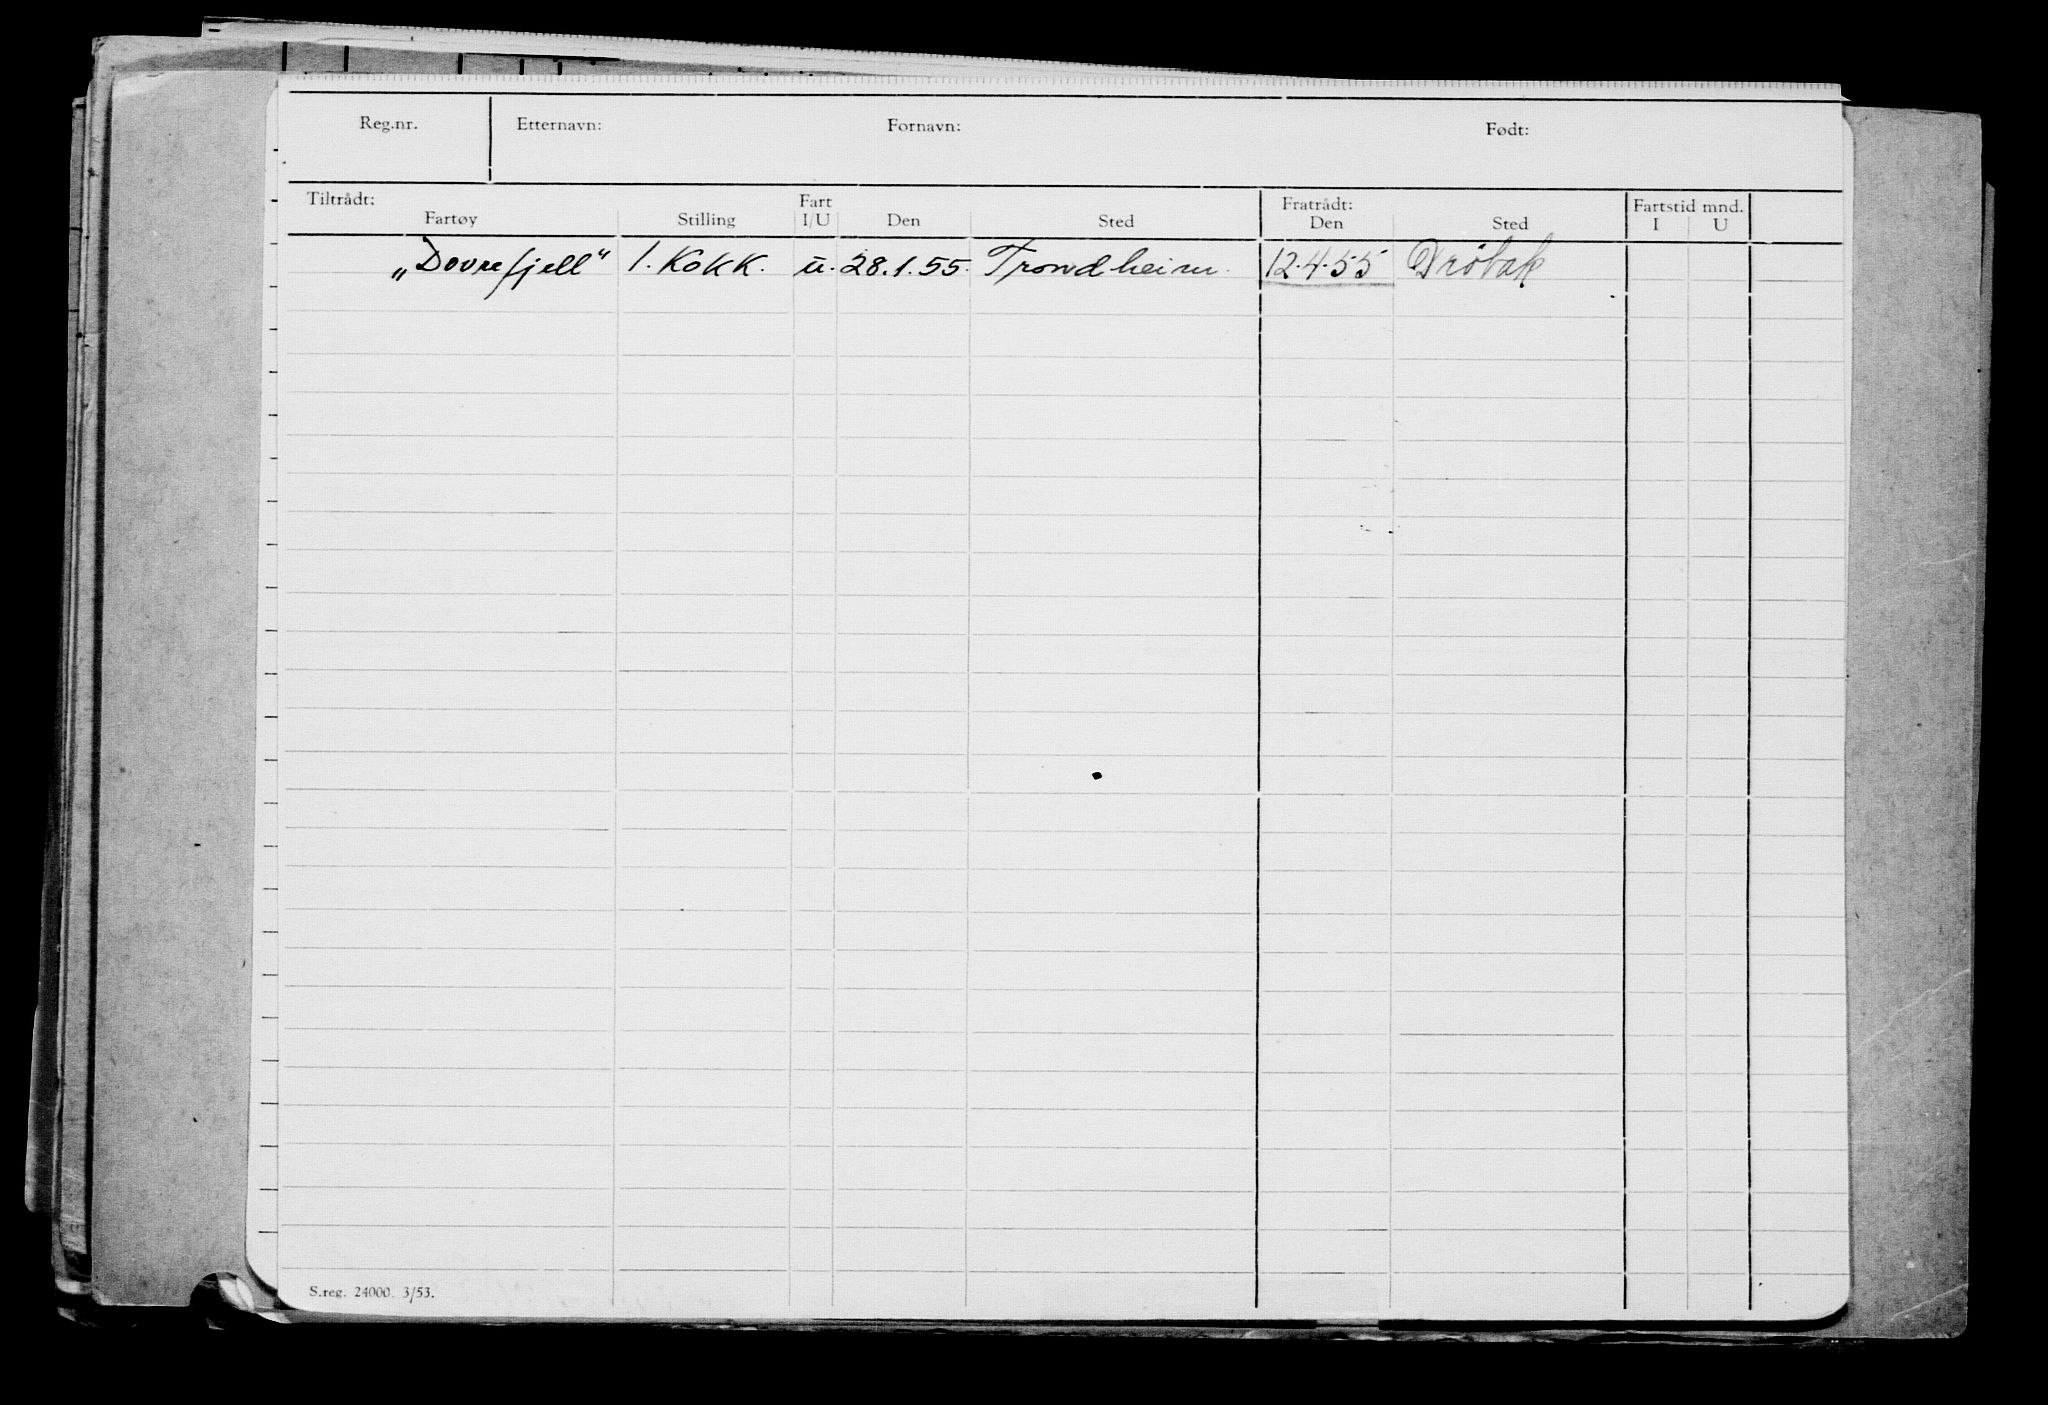 Reg.nr. Etternavn: Fornavn: Født:
Tiltrådt: Fart Fratrådt: Fartstid mnd.
Fartøy Stilling I/U Den Sted Den Sted I U
„Dovrefjell" 1. Kokk. u. 28.1.55. Trondheim. 12.4.55 Dröbak
S.reg. 24000. 3/53.